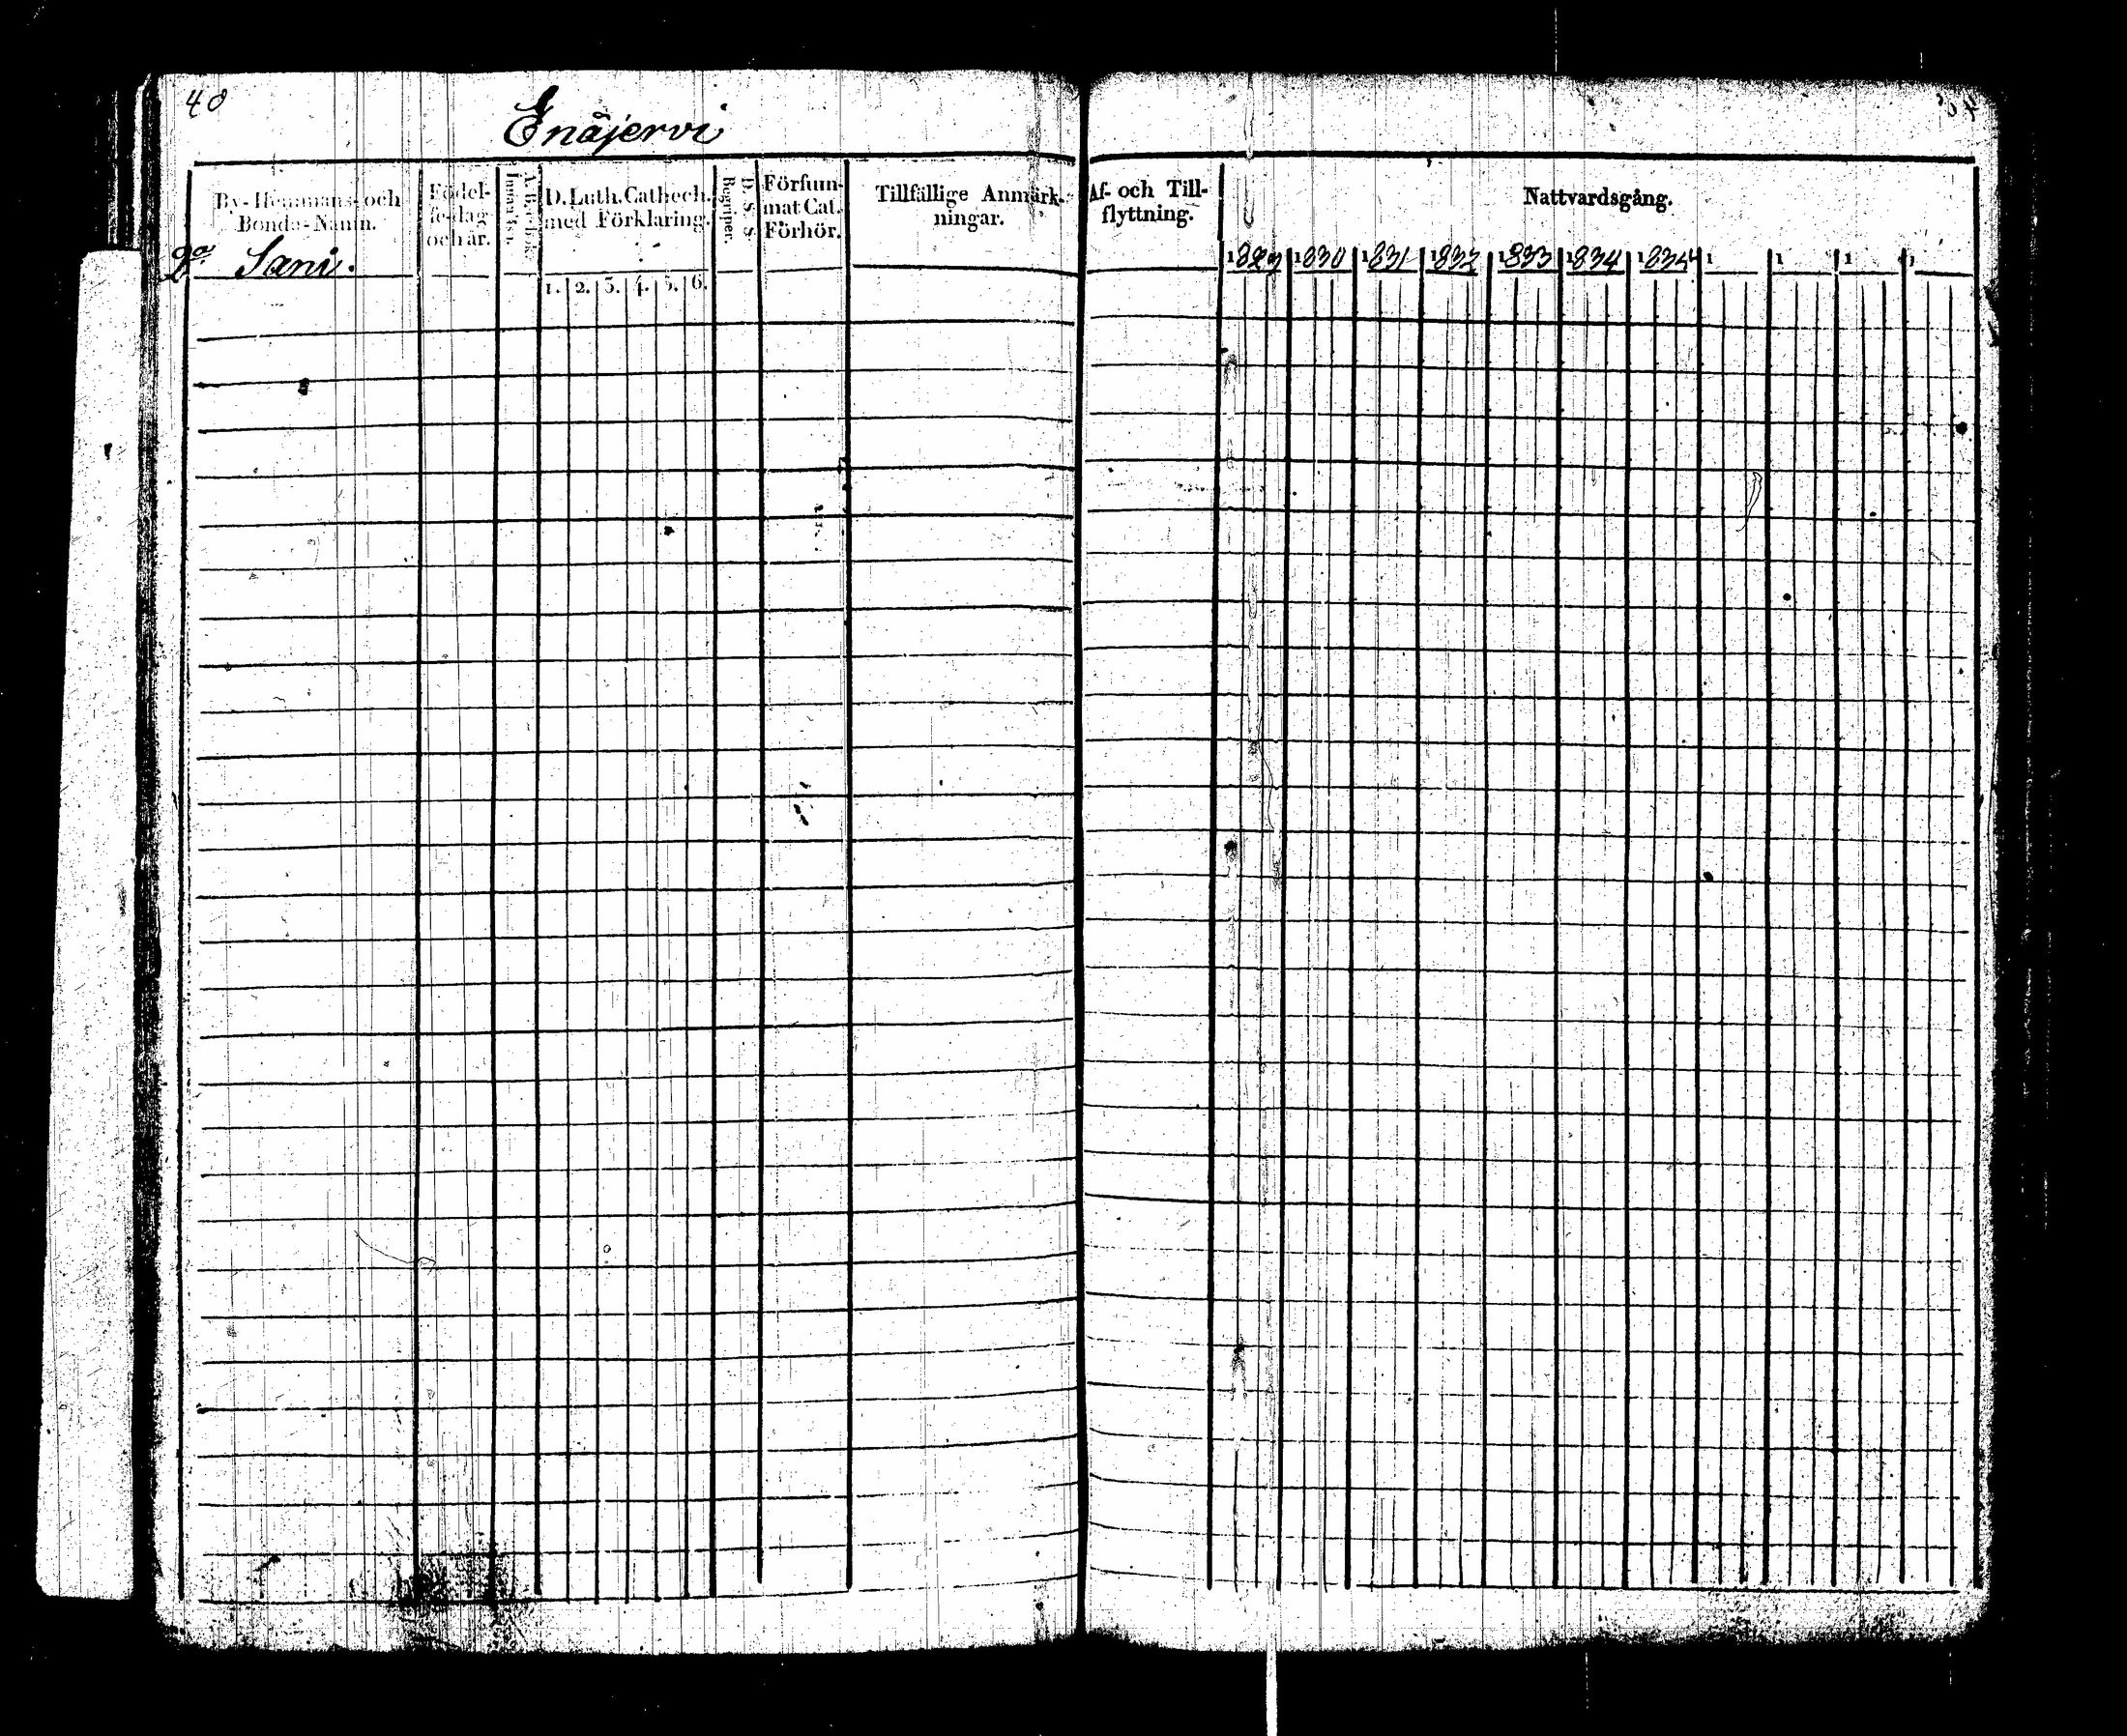 40
Enäjervi
By-Hemmans- och
Bonda-Namn.
Födel-
sedag
och år.
D. Luth. Cathech.
med Förklaring.
Begriper.
D. S. S.
Försum-
mat Cat.
Förhör.
Tillfällige Anmärk-
ningar.
Af- och Till-
flyttning.
Nattvardsgång.
2o Sani.
1. 2. 3. 4. 5. 6.
1829 1830 1831 1832 1833 1834 1835 1 1 1 1